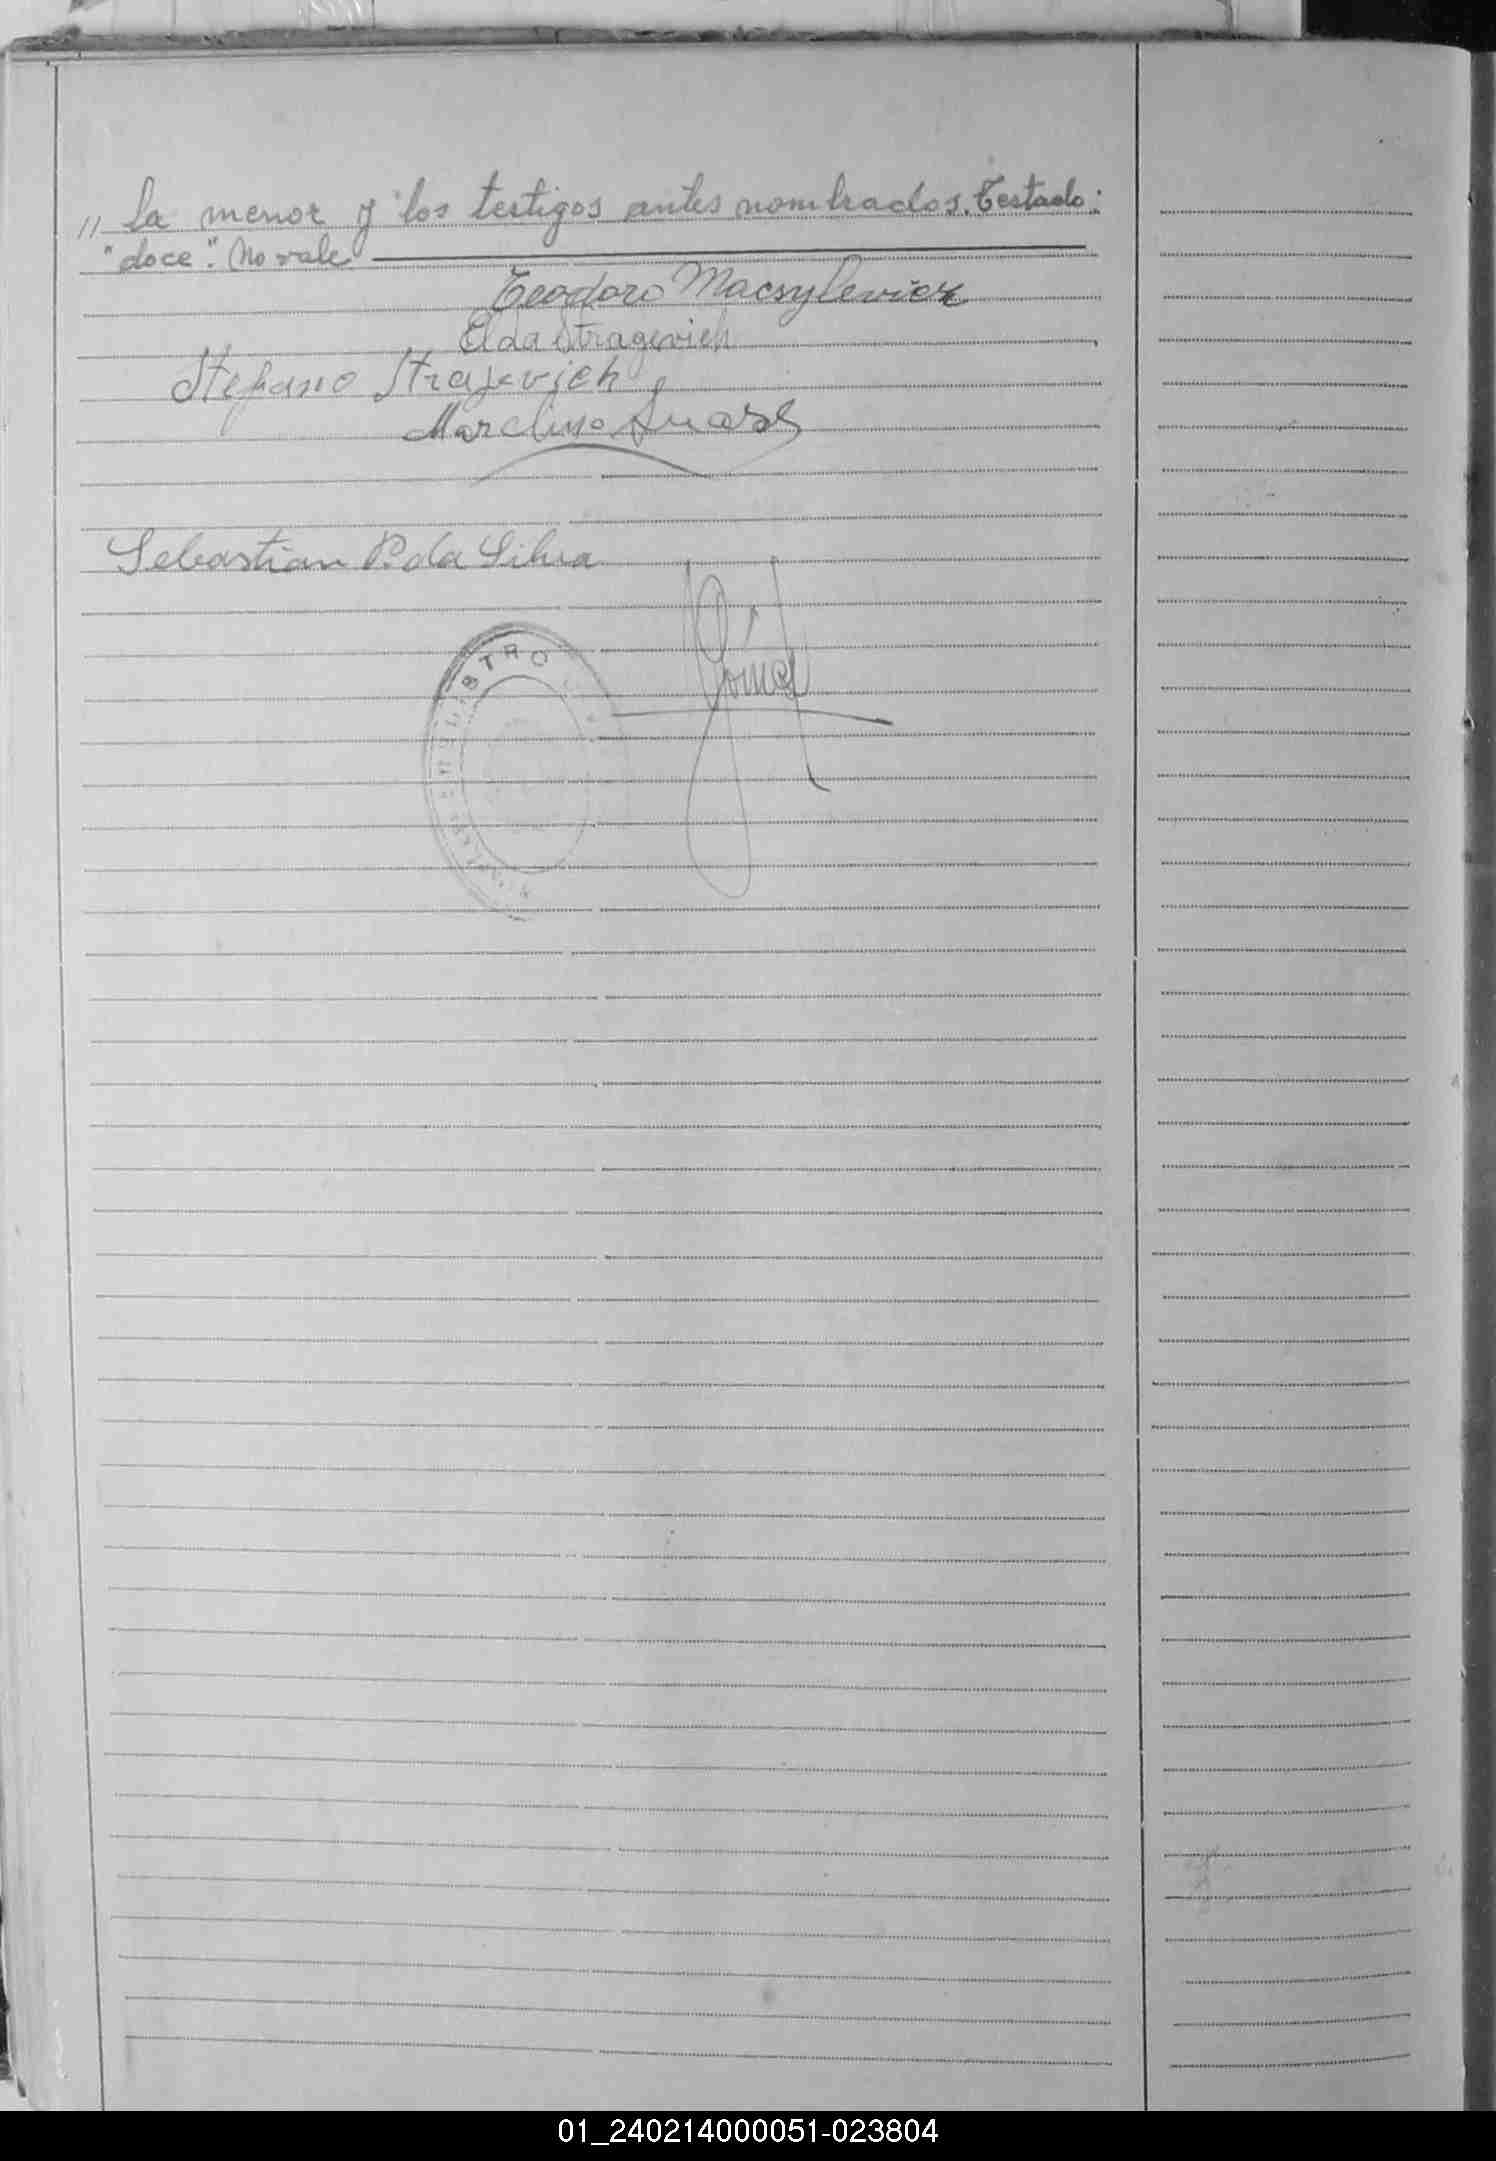 // la menor y los testigos antes nombrados. Testado:
"doce". No vale
Teodoro Macsylevicz
Elda Stragevich
Stefano Strajevjch
Marcelino Suarez
Sebastian P. da Silva
Gómez
REGISTRO
01_240214000051-023804